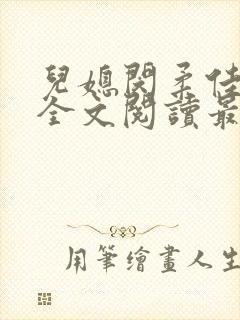 兒媳閔柔佳
全文閱讀最
用筆繪畫人生